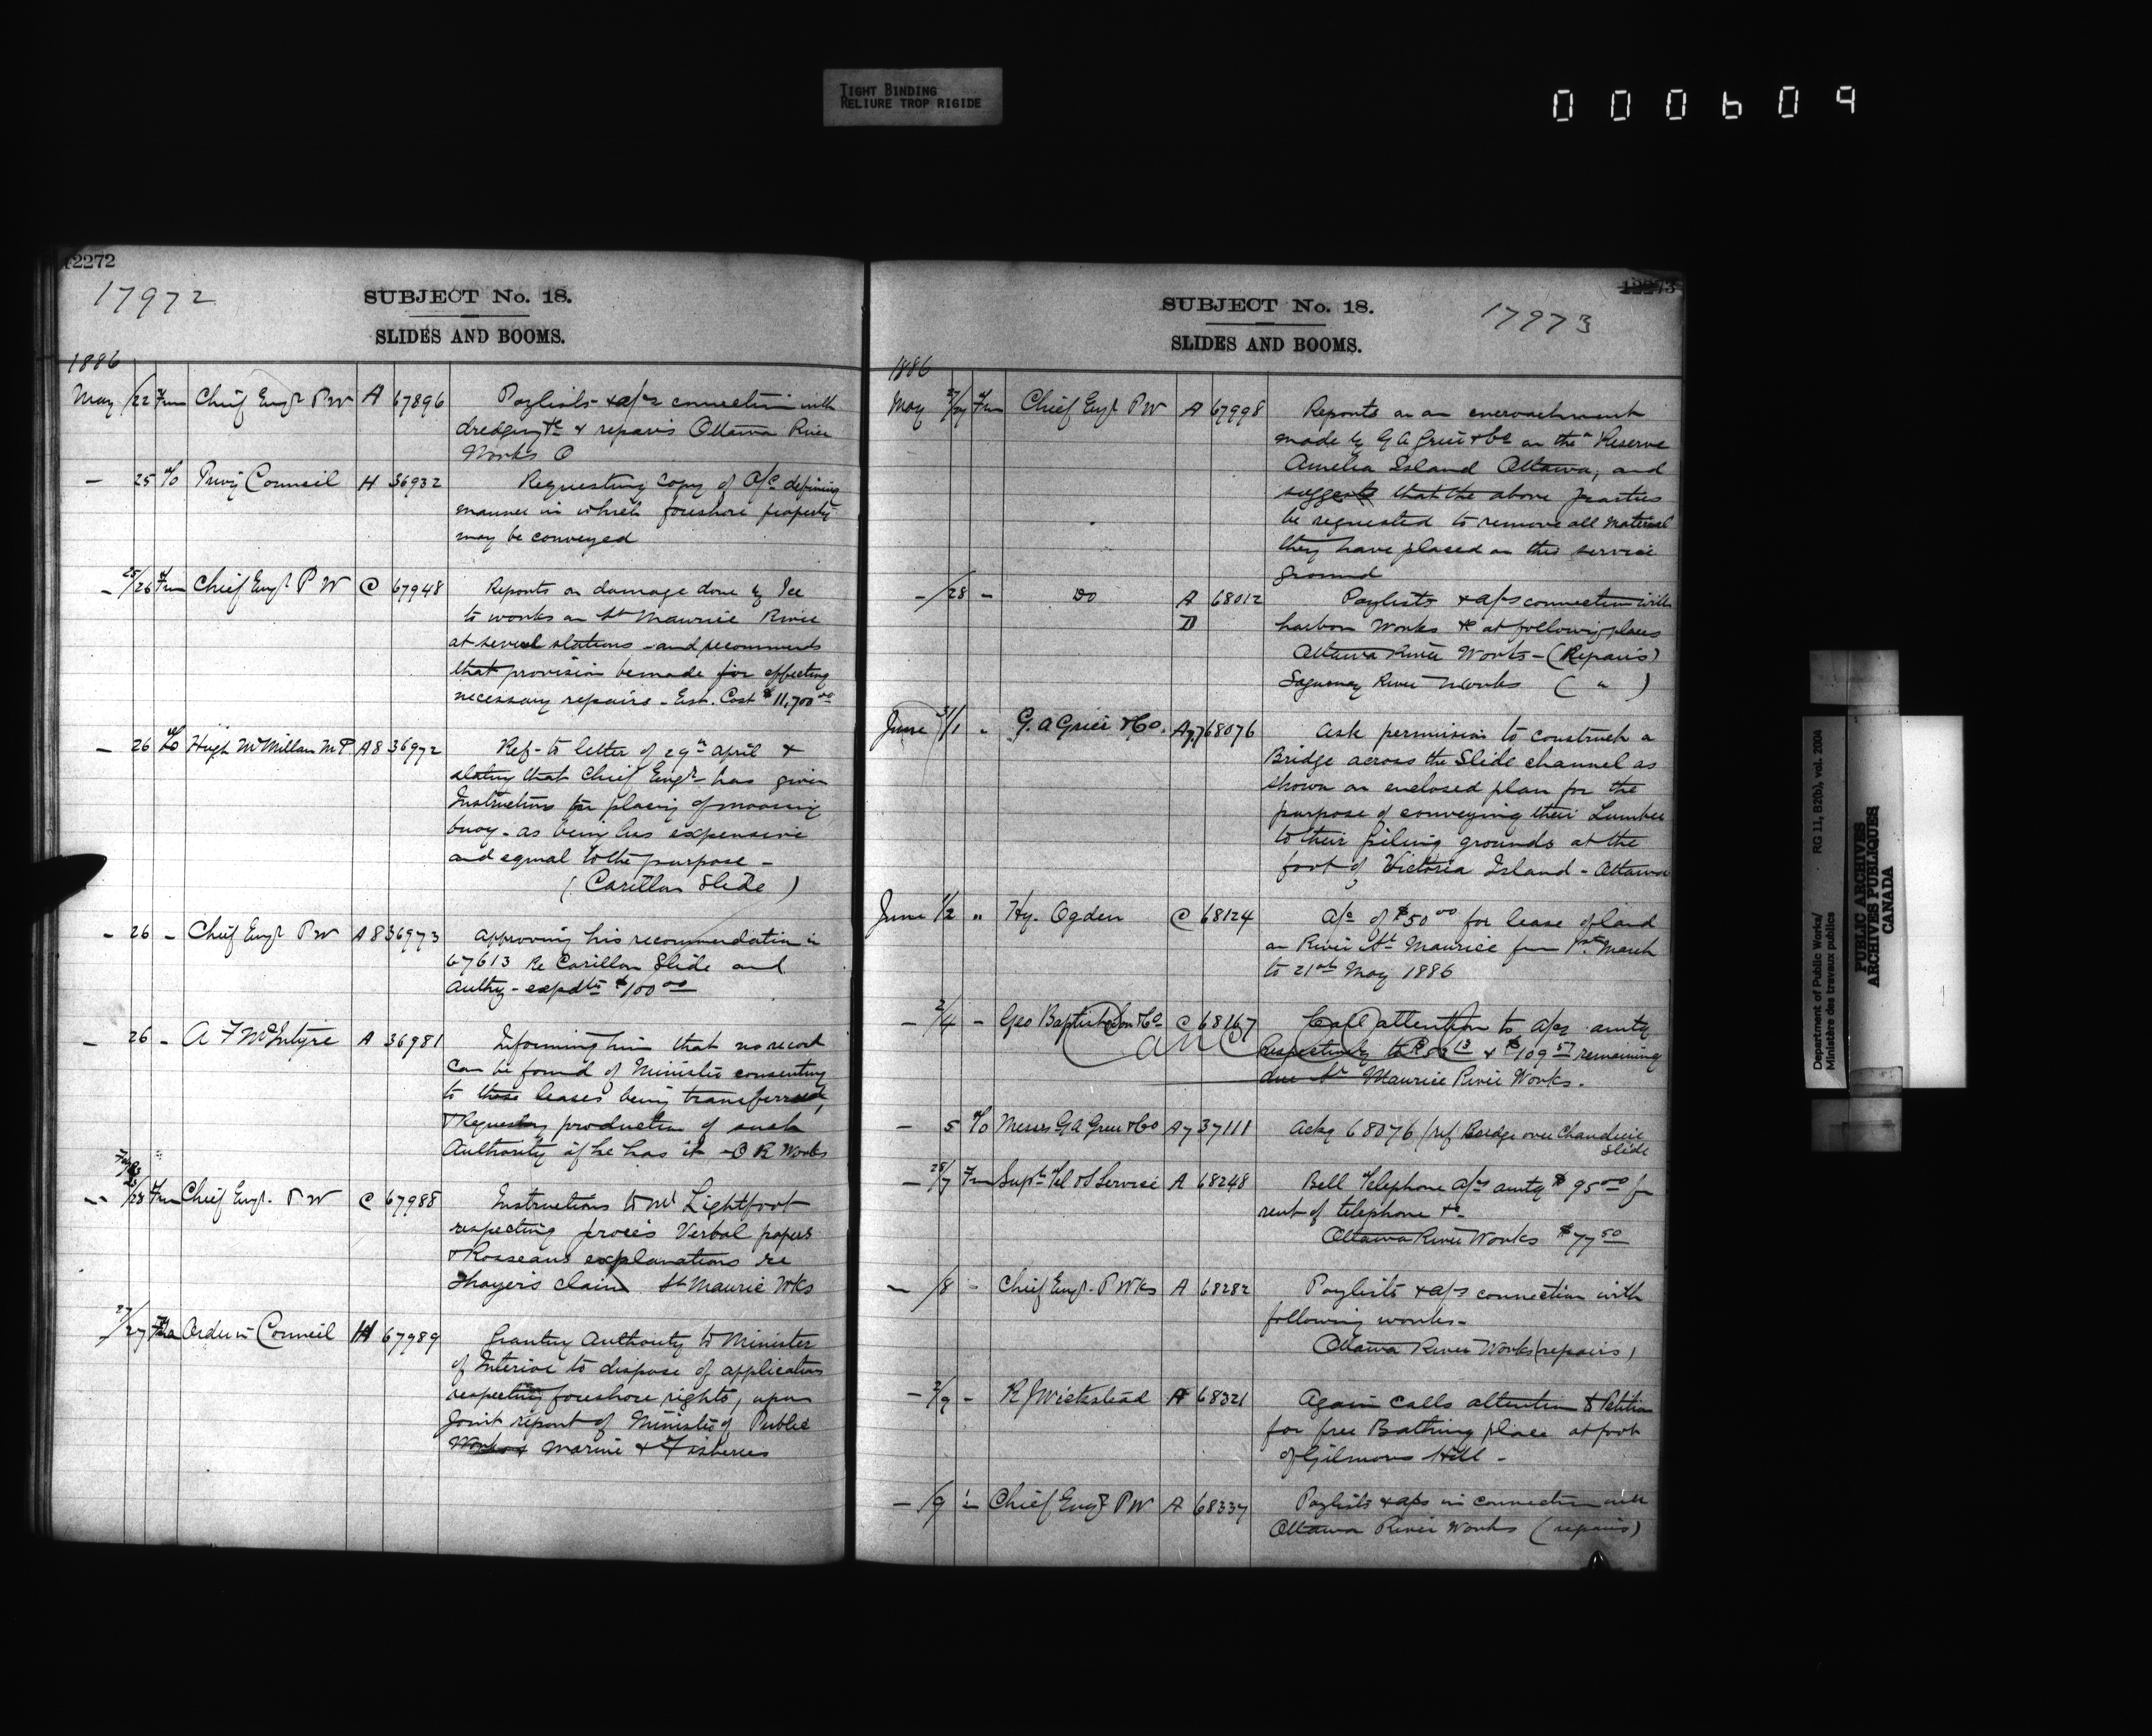 TIGHT BINDING
RELIURE TROP RIGIDE
000609
12272
17972
SUBJECT No. 18.
SLIDES AND BOOMS.
1886
May /22 Fm Chief Engr PW A 67896 Paylists & a/cs connection with
dredging &c & repairs Ottawa River
Works O
— 25 To Privy Council H 36932 Requesting copy of O/C defining
manner in which foreshore property
may be conveyed
— 25/26 Fm Chief Engr PW C 67948 Reports on damage done by Ice
to works on St Maurice River
at several stations - and recommends
that provision be made for effecting
necessary repairs - Est. Cost $11,700 00
— 26 To Hugh McMillan MP A8 36972 Ref- to letter of 29th april &
stating that Chief Engr has given
Instructions for placing of mooring
buoy - as being less expensive
and equal to the purpose -
(Carillon Slide)
— 26 - Chief Engr PW A8 36973 Approving his recommendation in
67613 Re Carillon Slide and
Authy - expdre $100 00
— 26 - A F McIntyre A 36981 Informing him that no record
can be found of Minister consenting
to those leases being transferred,
& Requesting production of such
Authority if he has it - O R Works
/28 Fm Chief Engr. PW C 67988 Instructions to Mr Lightfoot
respecting procès Verbal papers
& Rosseaus explanations re
Thayer's claim St Maurice Wks
27/27 Order in Council H 67989 Granting Authority to Minister
of Interior to dispose of application
respecting foreshore rights, upon
Joint report of Minister of Public
Works & Marine & Fisheries
12273
SUBJECT No. 18.
17973
SLIDES AND BOOMS.
1886
May 27/27 Fm Chief Engr PW A 67998 Reports on an encroachment
made by G A Grier & Co on the Reserve
Amelia Island Ottawa, and
suggests that the above parties
be requested to remove all material
they have placed on this service
ground
— /28 - Do A 68012 Paylists & a/cs connection with
D harbor Works &c at following places
Ottawa River Works - (Repairs)
Saguenay River Works ( " )
June 31/1 " G. A Grier & Co. A7 68076 Ask permission to construct a
Bridge across the Slide channel as
shown on enclosed plan for the
purpose of conveying their Lumber
to their piling grounds at the
foot of Victoria Island - Ottawa
June 1/2 " Hy. Ogden C 68124 A/c of $50 00 for lease of land
on River St Maurice from 1st March
to 21st May 1886
— 2/4 - Geo Baptist Son & Co C 68167 Call attention to a/cs amtg
Canc
respectively to & $109 57 remaining
due St Maurice River Works.
— 5 To Messrs G A Grier & Co A7 37111 Ackg 68076 / ref Bridge over Chaudiere
Slide
— 28/7 Fm Supt Tel & S Service A 68248 Bell Telephone a/cs amtg $95 00 for
rent of telephone &c
Ottawa River Works $77 50
— /8 - Chief Engr. P Wks A 68282 Paylists & a/cs connection with
following works -
Ottawa River Works (repairs)
— 2/9 - R J Wickstead A 68321 Again calls attention to Petition
for free Bathing place at foot
of Gilmours Hill -
— /9 " Chief Engr PW A 68337 Paylists & a/cs in connection with
Ottawa River Works (repairs)
Department of Public Works/
Ministère des travaux publics
RG 11, B2(b), vol. 2004
PUBLIC ARCHIVES
ARCHIVES PUBLIQUES
CANADA